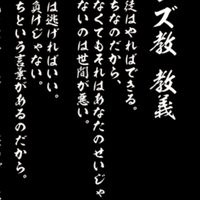 ンズ教 教義
徒はやればできる。
ちなのだから、
なくてもそれはあなたのせいじゃ
ないのは世間が悪い。
は逃げればいい。
負けじゃない。
ちという言葉があるのだから。